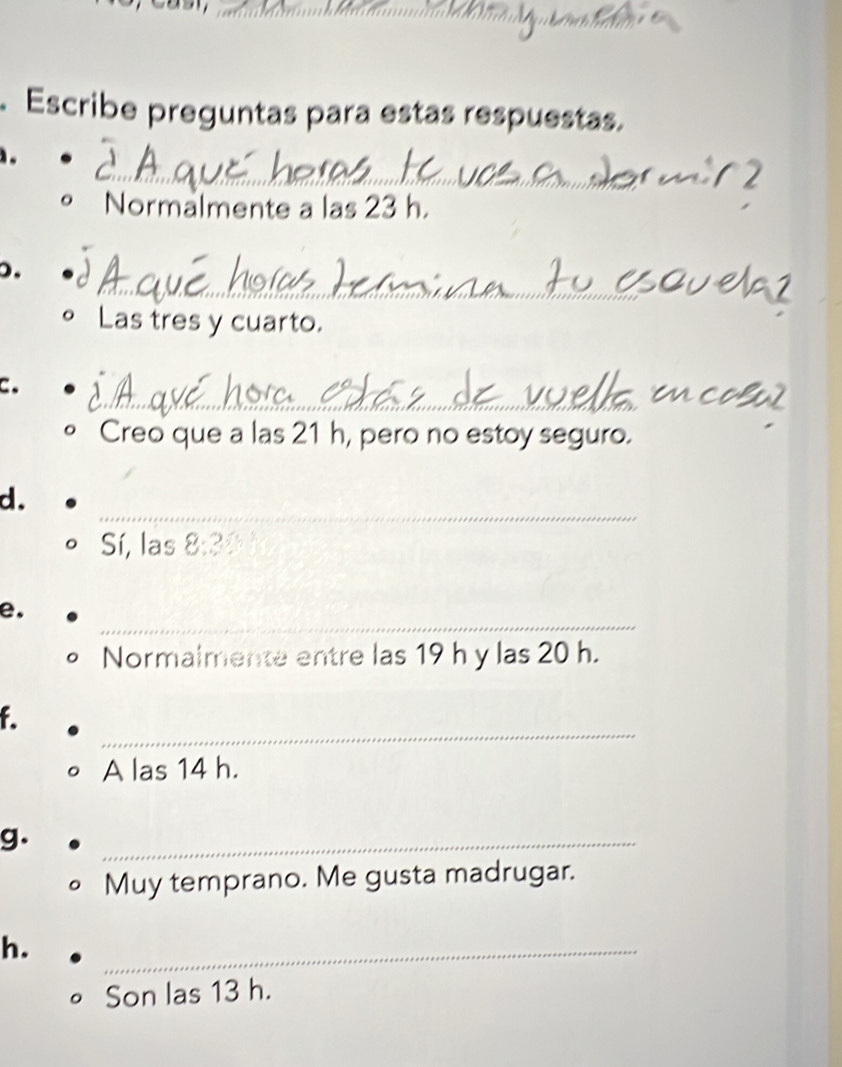 . Escribe preguntas para estas respuestas.
• ¿A qué horas te vas a dormir?
Normalmente a las 23 h.
• ¿A qué horas termina tu escuela?
Las tres y cuarto.
c. • ¿A qué hora estás de vuelta en casa?
Creo que a las 21 h, pero no estoy seguro.
d. •
Sí, las 8:30
e. •
Normalmente entre las 19 h y las 20 h.
f. •
A las 14 h.
g. •
Muy temprano. Me gusta madrugar.
h. •
Son las 13 h.